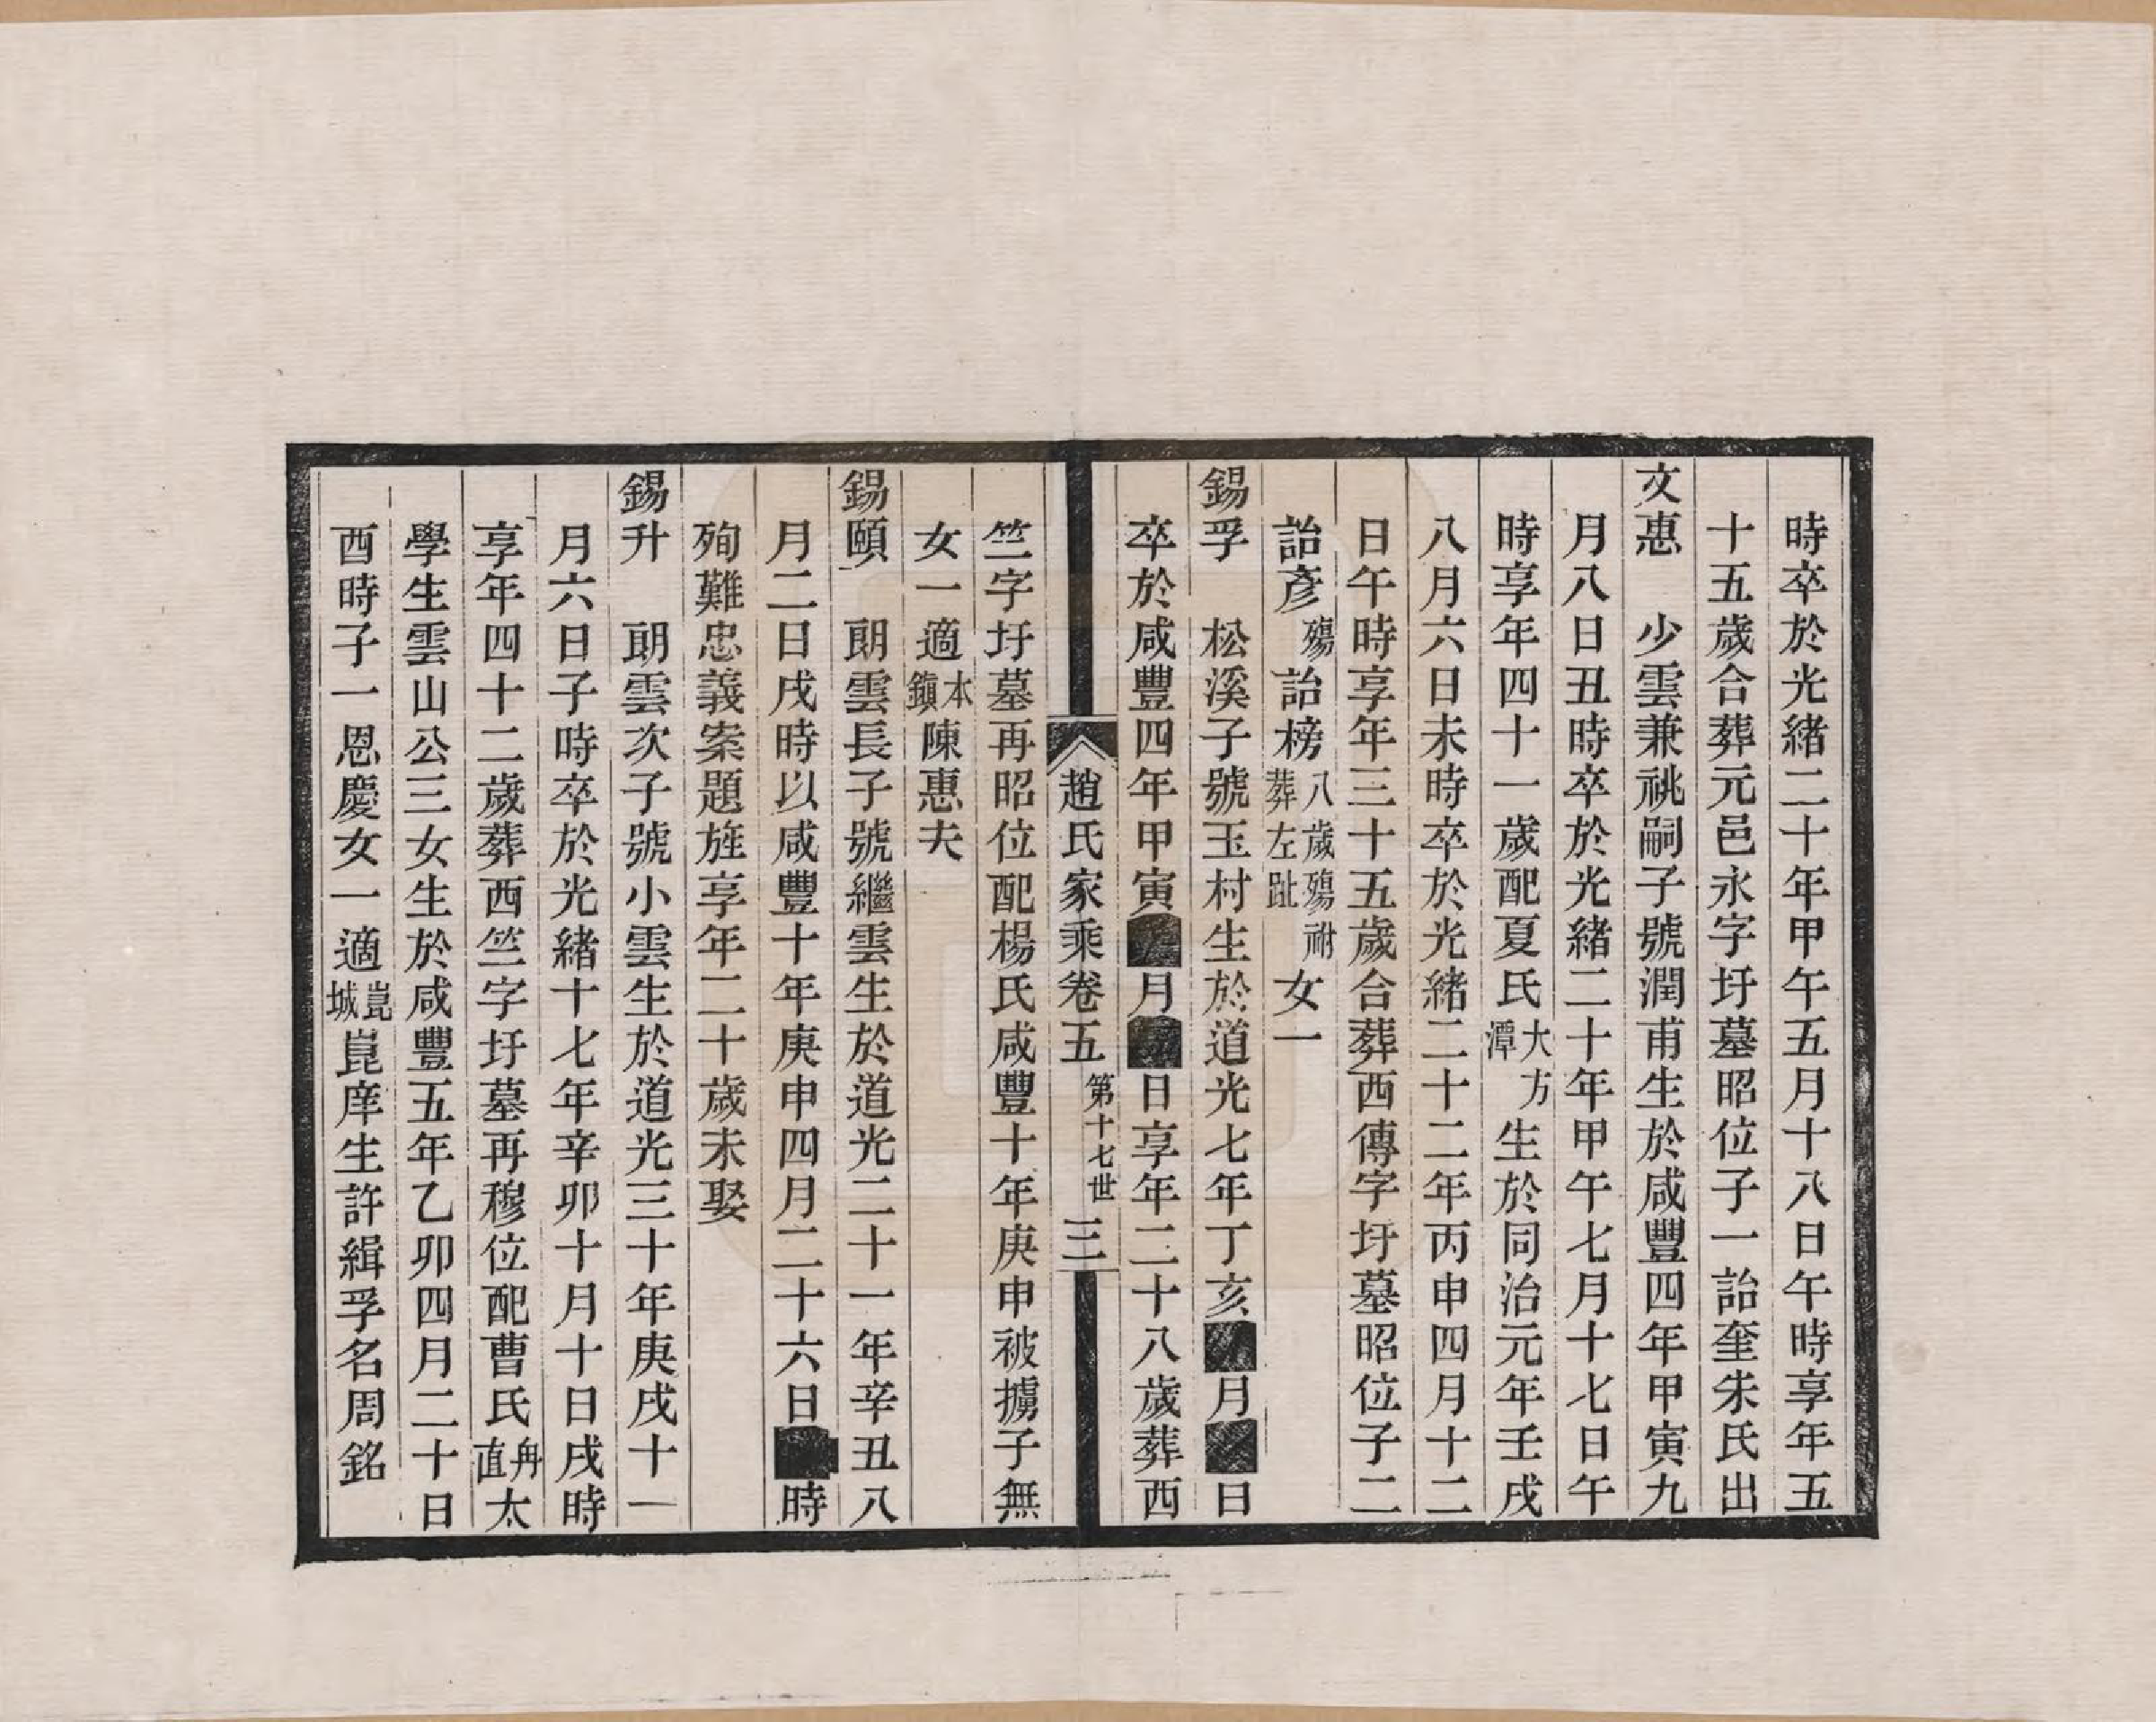 時卒於光緒二十年甲午五月十八日午時享年五
十五歲合葬元邑永字圩墓昭位子一詒奎朱氏出
文惠　少雲兼祧嗣子號潤甫生於咸豐四年甲寅九
月八日丑時卒於光緒二十年甲午七月十七日午
時享年四十一歲配夏氏大方潭生於同治元年壬戌
八月六日未時卒於光緒二十二年丙申四月十二
日午時享年三十五歲合葬西傳字圩墓昭位子二
詒彥殤詒榜八歲殤祔葬左趾女一
錫孚　松溪子號玉村生於道光七年丁亥■月■日
卒於咸豐四年甲寅■月■日享年二十八歲葬西
趙氏家乘卷五　第十七世　三
竺字圩墓再昭位配楊氏咸豐十年庚申被擄子無
女一適本鎭陳惠夫
錫頤　朗雲長子號繼雲生於道光二十一年辛丑八
月二日戌時以咸豐十年庚申四月二十六日■時
殉難忠義案題旌享年二十歲未娶
錫升　朗雲次子號小雲生於道光三十年庚戌十一
月六日子時卒於光緒十七年辛卯十月十日戌時
享年四十二歲葬西竺字圩墓再穆位配曹氏甪直太
學生雲山公三女生於咸豐五年乙卯四月二十日
酉時子一恩慶女一適崑城崑庠生許緝孚名周銘